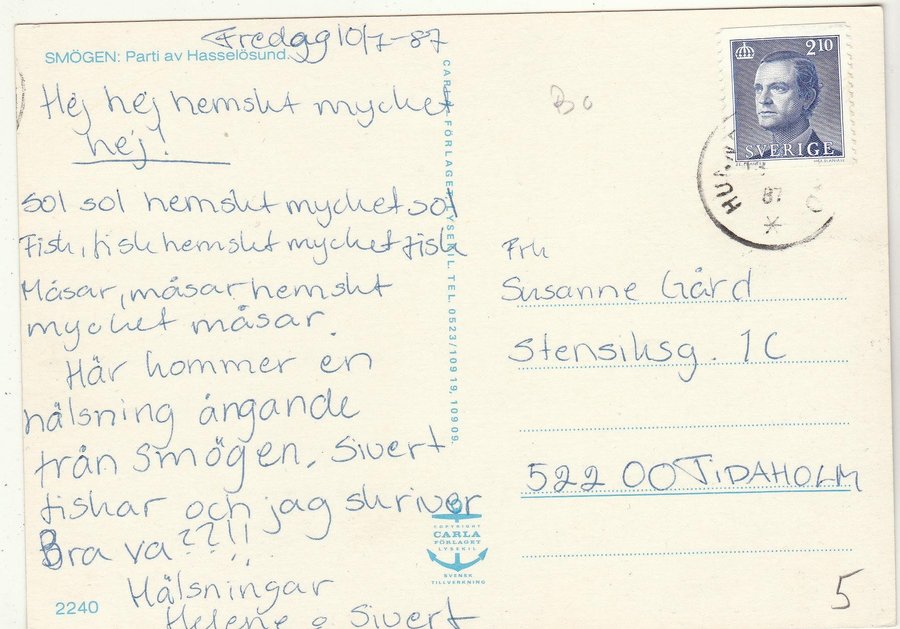 Fredag 10/7-87
SMÖGEN: Parti av Hasselösund.
Hej hej hemskt mycket
hej!
Sol sol hemskt mycket sol
Fisk, fisk hemskt mycket fisk
Måsar, måsar hemskt
mycket måsar.
Här kommer en
hälsning ångande
från Smögen. Sivert
fiskar och jag skriver
Bra va??!!
Hälsningar
Helene o Sivert
2240
CARLA FÖRLAGET LYSEKIL. TEL. 0523/109 19, 109 09.
COPYRIGHT
CARLA
FÖRLAGET
LYSEKIL
SVENSK
TILLVERKNING
2 10
SVERIGE
87
Frk
Susanne Gård
Stensiksg. 1C
522 00 TIDAHOLM
5